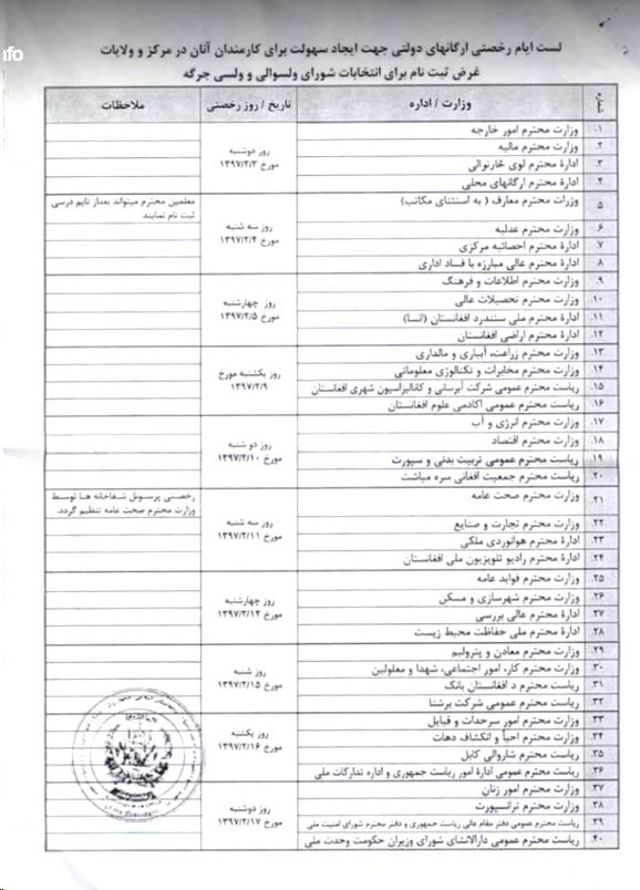 nfo
لست ایام رخصتی ارگانهای دولتی جهت ایجاد سهولت برای کارمندان آنان در مرکز و ولایات
غرض ثبت نام برای انتخابات شورای ولسوالی و ولسی جرگه
شماره وزارت / اداره تاریخ / روز رخصتی ملاحظات
۱. وزارت محترم امور خارجه
۲. وزارت محترم مالیه
روز دوشنبه
مورخ ۱۳۹۷/۲/۳
۳. ادارۀ محترم لوی څارنوالی
۴. ادارۀ محترم ارگانهای محلی
۵ وزرات محترم معارف ( به استثنای مکاتب)
معلمین محترم میتواند بعداز تایم درسی
ثبت نام نمایند
۶ وزارت محترم عدلیه
روز سه شنبه
مورخ ۱۳۹۷/۲/۴
۷ ادارۀ محترم احصائیه مرکزی
۸ ادارۀ محترم عالی مبارزه با فساد اداری
۹. وزارت محترم اطلاعات و فرهنگ
۱۰. وزارت محترم تحصیلات عالی
روز چهارشنبه
مورخ ۱۳۹۷/۲/۵
۱۱. ادارۀ محترم ملی ستندرد افغانستان (انسا)
۱۲. ادارۀ محترم اراضی افغانستان
۱۳. وزارت محترم زراعت، آبیاری و مالداری
۱۴. وزارت محترم مخابرات و تکنالوژی معلوماتی
روز یکشنبه مورخ
۱۳۹۷/۲/۹
۱۵. ریاست محترم عمومی شرکت آبرسانی و کانالیزاسیون شهری افغانستان
۱۶. ریاست محترم عمومی اکادمی علوم افغانستان
۱۷. وزارت محترم انرژی و آب
۱۸. وزارت محترم اقتصاد
روز دو شنبه
مورخ ۱۳۹۷/۲/۱۰
۱۹. ریاست محترم عمومی تربیت بدنی و سپورت
۲۰. ریاست محترم جمعیت افغانی سره میاشت
۲۱. وزارت محترم صحت عامه
رخصتی پرسونل شفاخانه ها توسط
وزارت محترم صحت عامه تنظیم گردد.
۲۲. وزارت محترم تجارت و صنایع
روز سه شنبه
مورخ ۱۳۹۷/۲/۱۱
۲۳. ادارۀ محترم هوانوردی ملکی
۲۴. ادارۀ محترم رادیو تلویزیون ملی افغانستان
۲۵. وزارت محترم فواید عامه
۲۶. وزارت محترم شهرسازی و مسکن
روز چهارشنبه
مورخ ۱۳۹۷/۲/۱۲
۲۷. ادارۀ محترم عالی بررسی
۲۸. ادارۀ محترم ملی حفاظت محیط زیست
۲۹. وزارت محترم معادن و پترولیم
۳۰. وزارت محترم کار، امور اجتماعی، شهدا و معلولین
روز شنبه
مورخ ۱۳۹۷/۲/۱۵
۳۱. ریاست محترم د افغانستان بانک
۳۲. ریاست محترم عمومی شرکت برشنا
۳۳. وزارت محترم امور سرحدات و قبایل
۳۴. وزارت محترم احیأ و انکشاف دهات
روز یکشنبه
مورخ ۱۳۹۷/۲/۱۶
۳۵. ریاست محترم شاروالی کابل
۳۶. ریاست محترم عمومی ادارۀ امور ریاست جمهوری و اداره تدارکات ملی
۳۷. وزارت محترم امور زنان
۳۸. وزارت محترم ترانسپورت
روز دوشنبه
مورخ ۱۳۹۷/۲/۱۷
۳۹. ریاست محترم عمومی دفتر مقام عالی ریاست جمهوری و دفتر محترم شورای امنیت ملی
۴۰. ریاست محترم عمومی دارالانشای شورای وزیران حکومت وحدت ملی